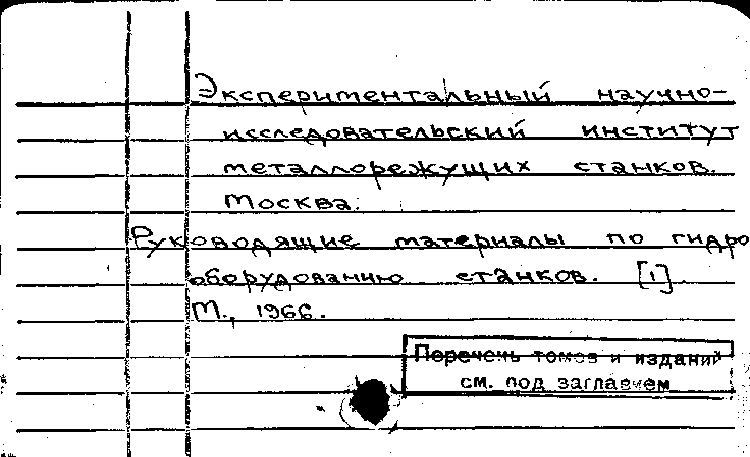 Экспериментальный научно-
исследовательский институт
металлорежущих станков.
Москва.
Руководящие материалы по гидро
оборудованию станков. [1]
М., 1966.
Перечень томов и изданий
см. под заглавием